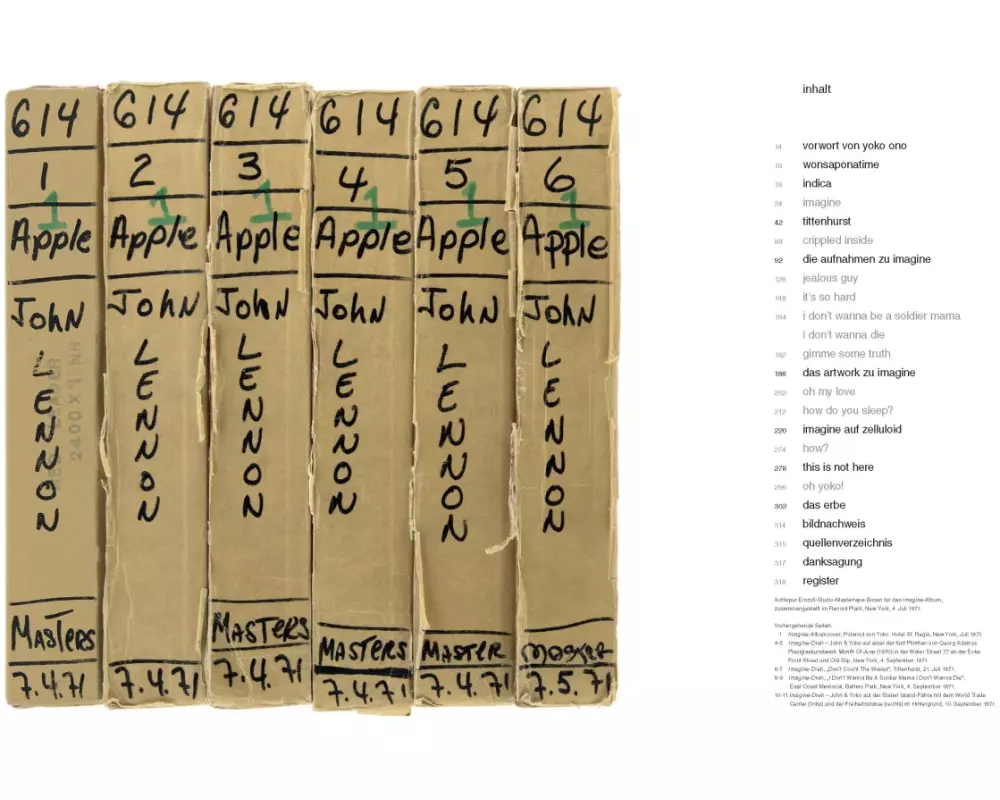 614
1
1
Apple
John
LENNON
2400 X 1
Masters
7.4.71
614
2
1
Apple
John
LENNON
7.4.71
614
3
1
Apple
John
LENNON
Masters
7.4.71
614
4
1
Apple
John
LENNON
Masters
7.4.71
614
5
1
Apple
John
LENNON
Master
7.4.71
614
6
1
Apple
John
LENNON
7.5.71
inhalt
14 vorwort von yoko ono
16 wonsaponatime
18 indica
34 imagine
42 tittenhurst
88 crippled inside
92 die aufnahmen zu imagine
126 jealous guy
148 it's so hard
164 i don't wanna be a soldier mama
i don't wanna die
182 gimme some truth
188 das artwork zu imagine
202 oh my love
212 how do you sleep?
220 imagine auf zelluloid
274 how?
276 this is not here
296 oh yoko!
302 das erbe
314 bildnachweis
315 quellenverzeichnis
317 danksagung
318 register
Achtspur-Einzoll-Studio-Mastertape-Boxen für das Imagine-Album,
zusammengestellt im Record Plant, New York, 4. Juli 1971.
Vorhergehende Seiten:
1 Imagine-Albumcover, Polaroid von Yoko. Hotel St. Regis, New York, Juli 1971.
4-5 Imagine-Dreh – John & Yoko auf einer der fünf Plinthen von Georg Adamys
Plexiglaskunstwerk Month Of June (1970) in der Water Street 77 an der Ecke
Front Street und Old Slip, New York, 4. September 1971.
6-7 Imagine-Dreh, „Don't Count The Waves“, Tittenhurst, 21. Juli 1971.
8-9 Imagine-Dreh, „I Don't Wanna Be A Soldier Mama I Don't Wanna Die“;
East Coast Memorial, Battery Park, New York, 4. September 1971.
10-11 Imagine-Dreh – John & Yoko auf der Staten Island-Fähre mit dem World Trade
Center (links) und der Freiheitsstatue (rechts) im Hintergrund, 10. September 1971.